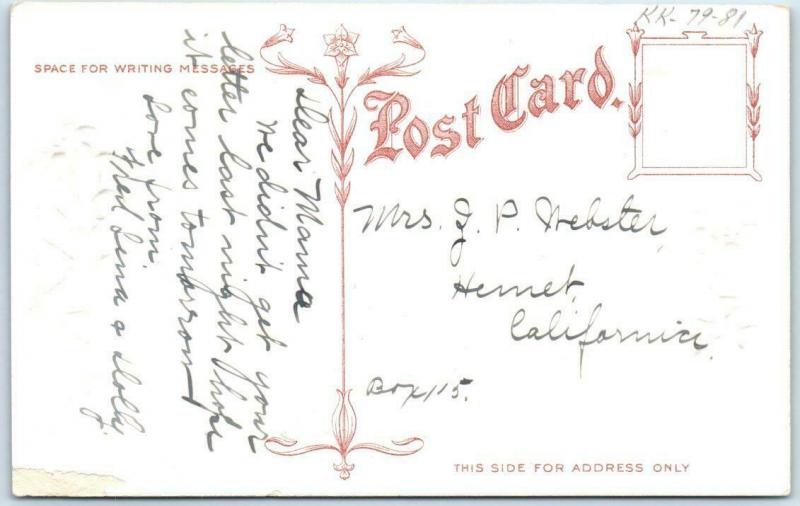 KK-79-81
SPACE FOR WRITING MESSAGES
Post Card.
Dear Mama
We didn't get your
letter last night I hope
it comes tomorrow
Love from
Lena & Dolly.
Mrs. J. P. Webster,
Hemet,
California.
Box 115.
THIS SIDE FOR ADDRESS ONLY